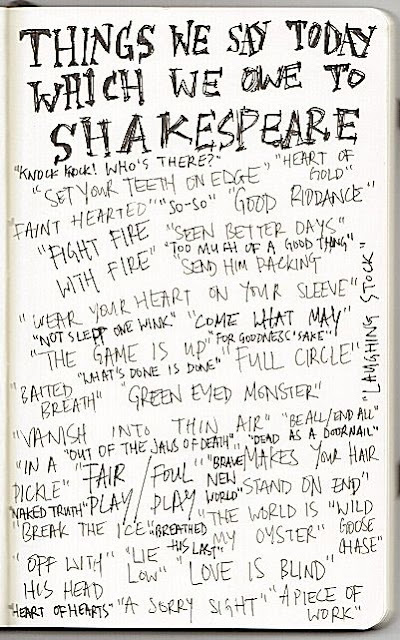 THINGS WE SAY TODAY
WHICH WE OWE TO
SHAKESPEARE
"KNOCK KNOCK! WHO'S THERE?" "HEART OF
GOLD"
"SET YOUR TEETH ON EDGE"
FAINT HEARTED" "SO-SO" "GOOD RIDDANCE"
"FIGHT FIRE
WITH FIRE"
"SEEN BETTER DAYS"
"TOO MUCH OF A GOOD THING"
"SEND HIM PACKING"
"WEAR YOUR HEART ON YOUR SLEEVE"
"LAUGHING STOCK"
"NOT SLEPT ONE WINK" "COME WHAT MAY"
"THE GAME IS UP" "FOR GOODNESS' SAKE"
"WHAT'S DONE IS DONE" "FULL CIRCLE"
"BAITED
BREATH"
"GREEN EYED MONSTER"
"VANISH INTO THIN AIR" "BE ALL/END ALL"
"OUT OF THE JAWS OF DEATH" "DEAD AS A DOORNAIL"
"IN A
PICKLE"
"FAIR
PLAY
FOUL
PLAY
"BRAVE
NEW
WORLD"
MAKES YOUR HAIR
STAND ON END"
"NAKED TRUTH"
"THE WORLD IS
MY OYSTER"
"WILD
GOOSE
CHASE"
"BREAK THE ICE" "BREATHED
HIS LAST"
"OFF WITH
HIS HEAD
"LIE
LOW" "LOVE IS BLIND"
"HEART OF HEARTS" "A SORRY SIGHT" "A PIECE OF
WORK"